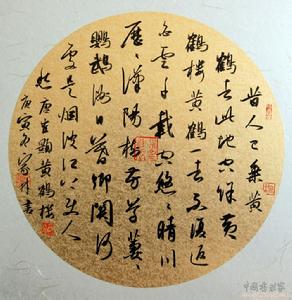 昔人已乘黄
鹤去此地空余黄
鹤楼黄鹤一去不复返
白云千载空悠悠晴川
历历汉阳树芳草萋萋
鹦鹉洲日暮乡关何
处是烟波江上使人
愁唐崔颢黄鹤楼
庚寅冬书